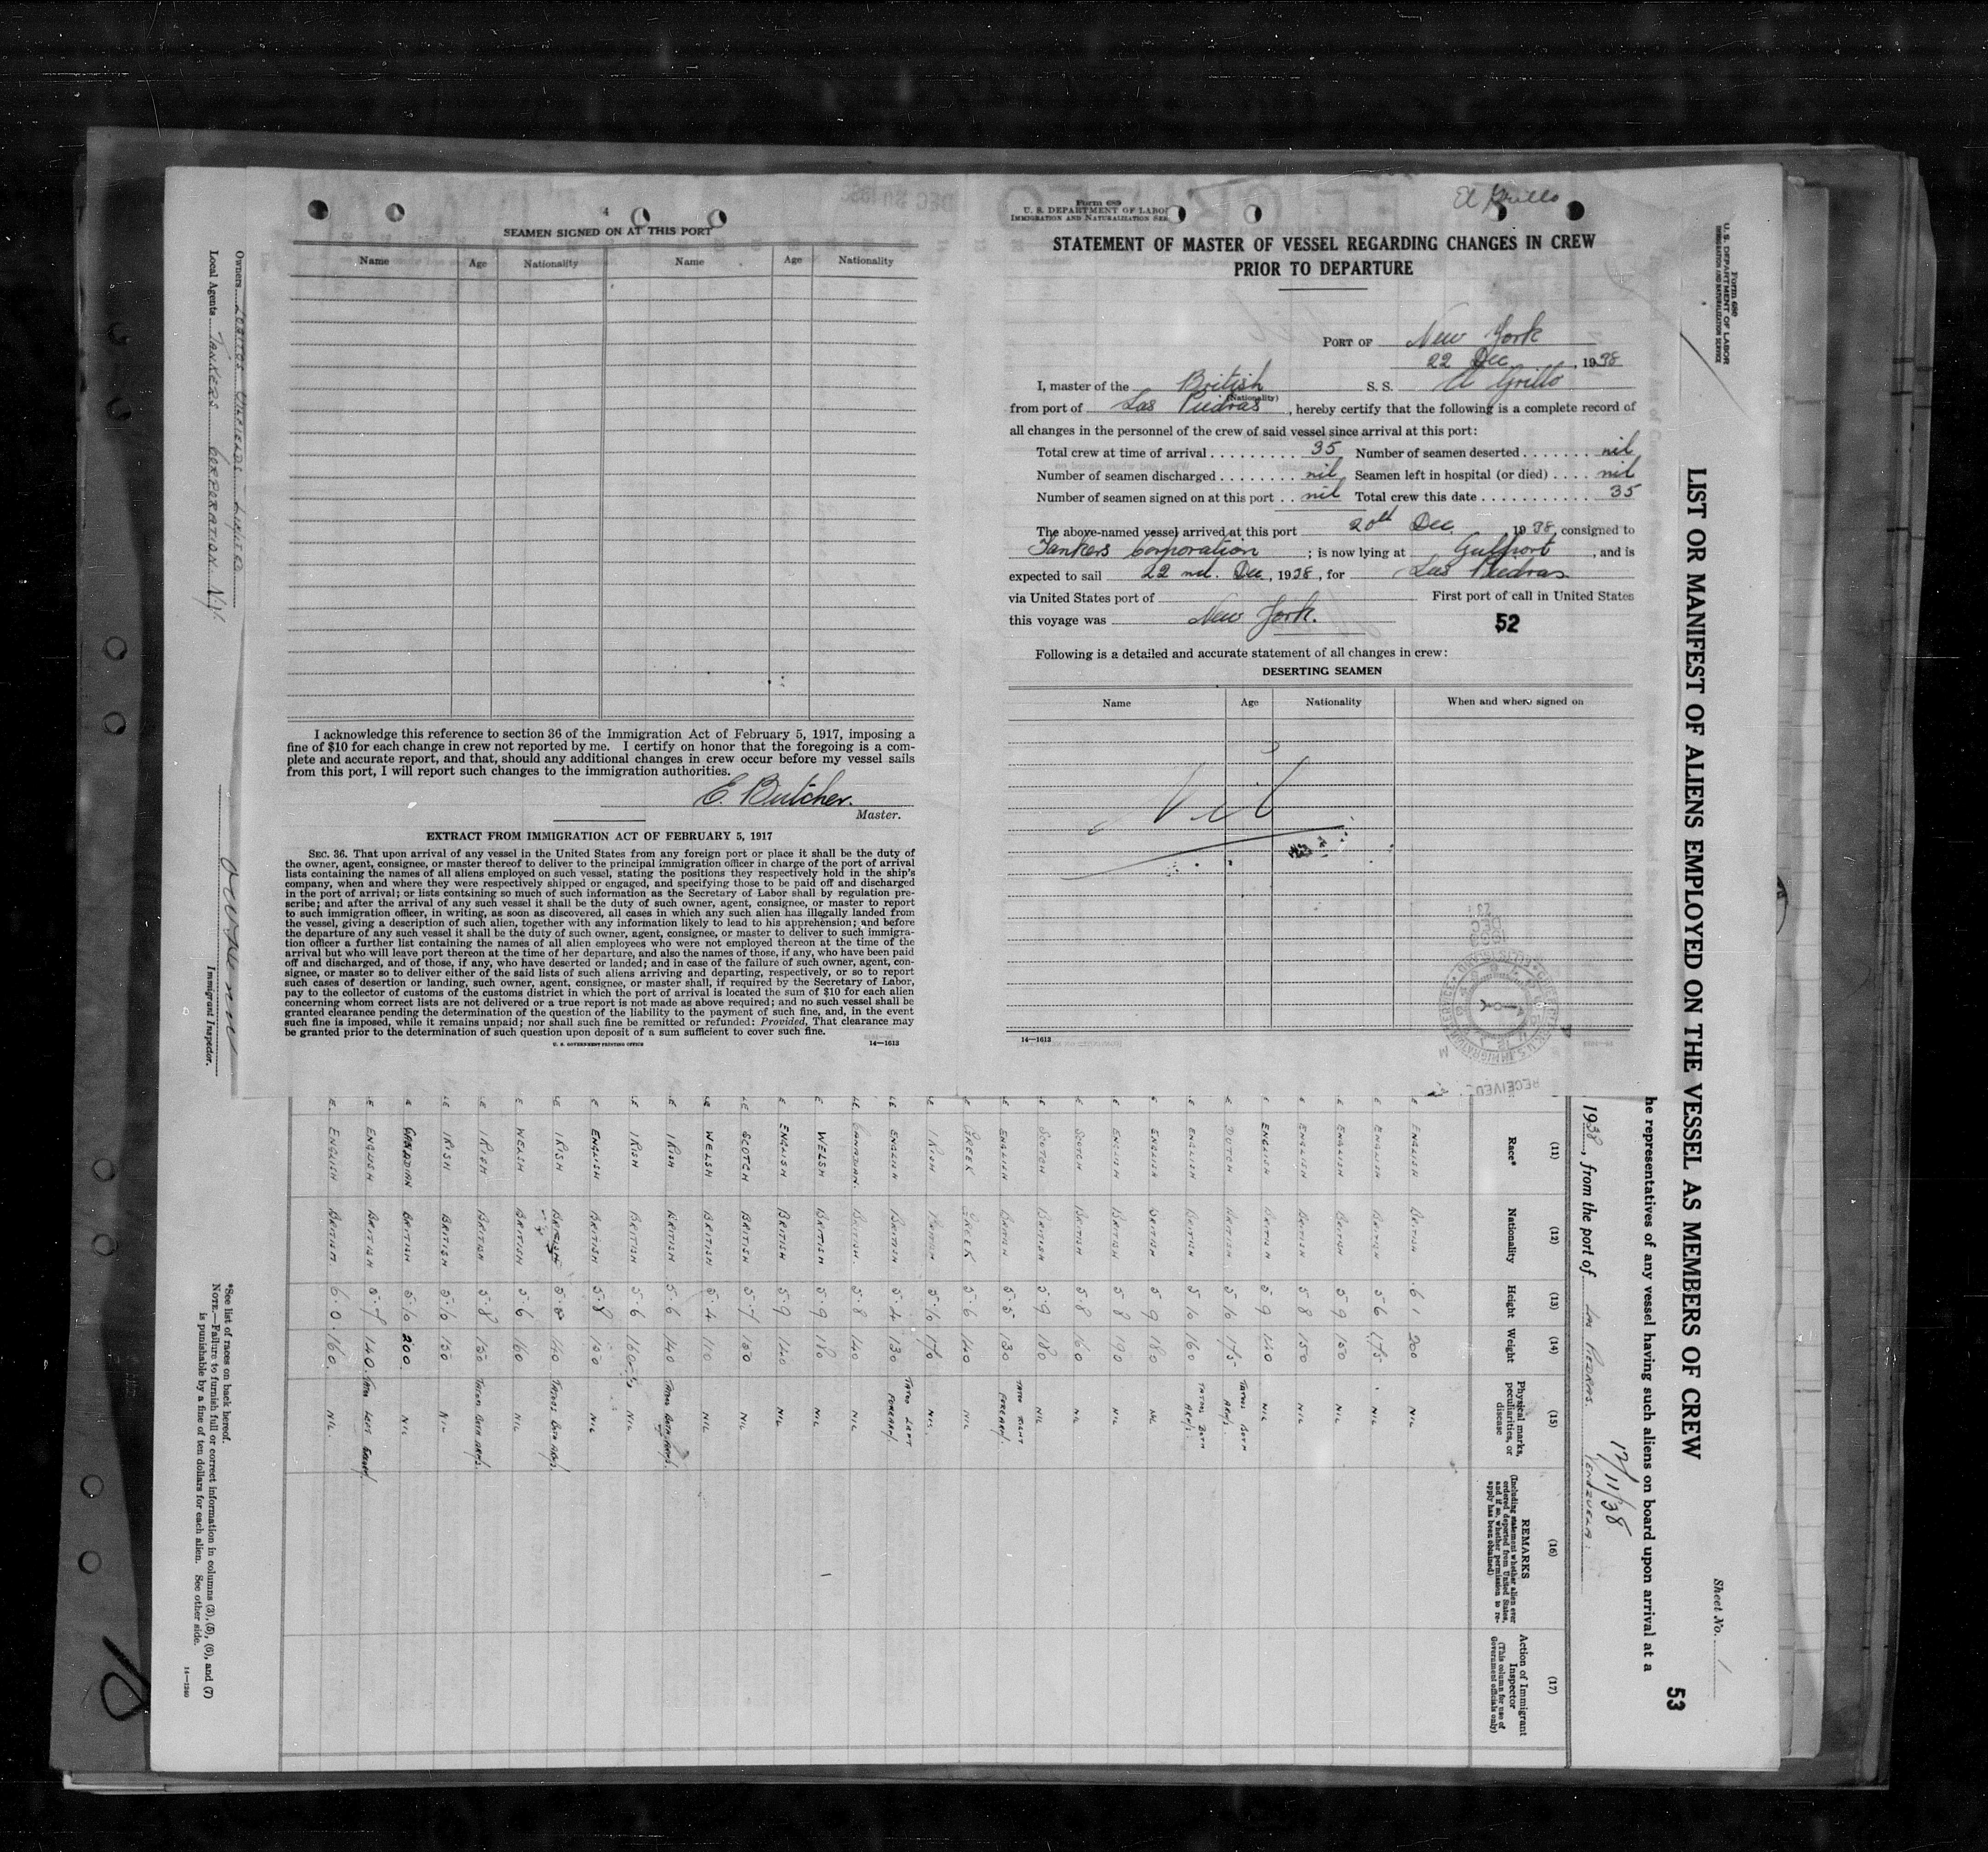 4
SEAMEN SIGNED ON AT THIS PORT
Name Age Nationality Name Age Nationality
I acknowledge this reference to section 36 of the Immigration Act of February 5, 1917, imposing a
fine of $10 for each change in crew not reported by me. I certify on honor that the foregoing is a com-
plete and accurate report, and that, should any additional changes in crew occur before my vessel sails
from this port, I will report such changes to the immigration authorities.
E. Butcher.
Master.
EXTRACT FROM IMMIGRATION ACT OF FEBRUARY 5, 1917
SEC. 36. That upon arrival of any vessel in the United States from any foreign port or place it shall be the duty of
the owner, agent, consignee, or master thereof to deliver to the principal immigration officer in charge of the port of arrival
lists containing the names of all aliens employed on such vessel, stating the positions they respectively hold in the ship's
company, when and where they were respectively shipped or engaged, and specifying those to be paid off and discharged
in the port of arrival; or lists containing so much of such information as the Secretary of Labor shall by regulation pre-
scribe; and after the arrival of any such vessel it shall be the duty of such owner, agent, consignee, or master to report
to such immigration officer, in writing, as soon as discovered, all cases in which any such alien has illegally landed from
the vessel, giving a description of such alien, together with any information likely to lead to his apprehension; and before
the departure of any such vessel it shall be the duty of such owner, agent, consignee, or master to deliver to such immigra-
tion officer a further list containing the names of all alien employees who were not employed thereon at the time of the
arrival but who will leave port thereon at the time of her departure, and also the names of those, if any, who have been paid
off and discharged, and of those, if any, who have deserted or landed; and in case of the failure of such owner, agent, con-
signee, or master so to deliver either of the said lists of such aliens arriving and departing, respectively, or so to report
such cases of desertion or landing, such owner, agent, consignee, or master shall, if required by the Secretary of Labor,
pay to the collector of customs of the customs district in which the port of arrival is located the sum of $10 for each alien
concerning whom correct lists are not delivered or a true report is not made as above required; and no such vessel shall be
granted clearance pending the determination of the question of the liability to the payment of such fine, and, in the event
such fine is imposed, while it remains unpaid; nor shall such fine be remitted or refunded: Provided, That clearance may
be granted prior to the determination of such question upon deposit of a sum sufficient to cover such fine.
U. S. GOVERNMENT PRINTING OFFICE 14—1613
El Grillo
Form 689
U. S. DEPARTMENT OF LABOR
IMMIGRATION AND NATURALIZATION SER
STATEMENT OF MASTER OF VESSEL REGARDING CHANGES IN CREW
PRIOR TO DEPARTURE
PORT OF New York
22 Dec, 1938
I, master of the British S. S. El Grillo
(Nationality)
from port of Las Piedras, hereby certify that the following is a complete record of
all changes in the personnel of the crew of said vessel since arrival at this port:
Total crew at time of arrival 35 Number of seamen deserted nil
Number of seamen discharged nil Seamen left in hospital (or died) nil
Number of seamen signed on at this port nil Total crew this date 35
The above-named vessel arrived at this port 20th Dec 1938, consigned to
Tankers Corporation; is now lying at Gulfport, and is
expected to sail 22nd. Dec, 1938, for Las Piedras
via United States port of First port of call in United States
this voyage was New York.
52
Following is a detailed and accurate statement of all changes in crew:
DESERTING SEAMEN
Name Age Nationality When and where signed on
Nil
14—1613
RECEIVED
Form 680
U. S. DEPARTMENT OF LABOR
IMMIGRATION AND NATURALIZATION SERVICE
LIST OR MANIFEST OF ALIENS EMPLOYED ON THE VESSEL AS MEMBERS OF CREW
Sheet No. 1
53
he representatives of any vessel having such aliens on board upon arrival at a
12/11/38
1938, from the port of LAS PIEDRAS. VENEZUELA.
(11) (12) (13) (14) (15) (16) (17)
Race* Nationality Height Weight Physical marks, peculiarities, or disease
REMARKS (Including statement whether alien ever ordered deported from United States, and if so, whether permission to re-apply has been obtained)
Action of Immigrant Inspector (This column for use of Government officials only)
ENGLISH BRITISH 6 1 200 NIL
ENGLISH BRITISH 5 6 175 NIL
ENGLISH BRITISH 5 9 150 NIL
ENGLISH BRITISH 5 8 150 NIL
ENGLISH BRITISH 5 9 140 NIL
DUTCH BRITISH 5 10 175 TATOO BOTH ARMS.
ENGLISH BRITISH 5 10 160 TATTOO BOTH ARMS.
ENGLISH BRITISH 5 9 180 NIL
ENGLISH BRITISH 5 8 190 NIL
SCOTCH BRITISH 5 8 160 NIL
SCOTCH BRITISH 5.9 180 NIL
ENGLISH BRITISH 5.5 130 TATOO RIGHT FOREARM.
GREEK GREEK 5.6 140 NIL
IRISH BRITISH 5.10 170 NIL
ENGLISH BRITISH 5.4 130 TATOO LEFT FOREARM.
CANADIAN. BRITISH. 5.8 140 NIL
WELSH BRITISH 5.9 180 NIL
ENGLISH BRITISH 5.9 140 NIL
SCOTCH BRITISH 5.7 150 NIL
WELSH BRITISH 5.4 110 NIL
IRISH BRITISH 5.6 140 TATOO BOTH ARMS.
IRISH BRITISH 5.6 160 NIL
ENGLISH BRITISH 5.8 150 NIL
IRISH BRITISH 5.8 140 TATOOS BOTH ARMS.
WELSH BRITISH 5.6 160 NIL
IRISH BRITISH 5.8 150 TATOO BOTH ARMS.
IRISH BRITISH 5.10 150 NIL
CANADIAN BRITISH 5.10 200 NIL
ENGLISH BRITISH 5.7 140
ENGLISH BRITISH 6.0. 160. NIL.
Owners LOBITOS OILFIELDS LIMITED
Local Agents TANKERS CORPORATION N.Y.
Immigrant Inspector.
*See list of races on back hereof.
NOTE.—Failure to furnish full or correct information in columns (3), (5), (6), and (7)
is punishable by a fine of ten dollars for each alien. See other side.
14—1240